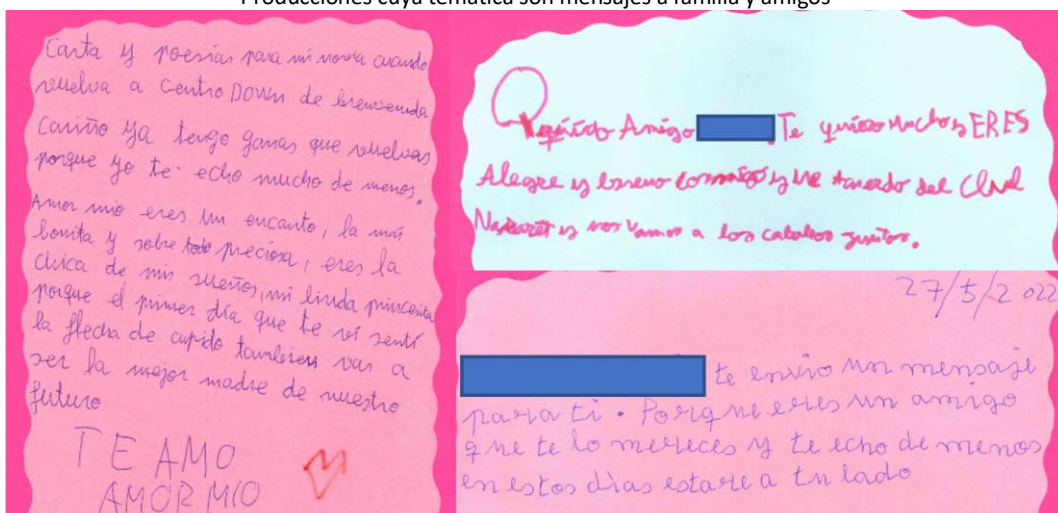 Producciones cuya temática son mensajes a familia y amigos
Carta y poesías para mi novia cuando
vuelva a Centro DOWN de bienvenida
Cariño ya tengo ganas que vuelvas
porque yo te echo mucho de menos.
Amor mio eres un encanto, la más
bonita y sobre todo preciosa, eres la
chica de mis sueños, mi linda princesita
porque el primer día que te ví sentí
la flecha de cupido tambien vas a
ser la mejor madre de nuestro
futuro
TE AMO
AMOR MIO
Querido Amigo Te quiero mucho y ERES
Alegre y bueno conmigo y me acuerdo del Club
Nazaret y nos vamos a los caballos juntos.
27/5/2022
te envio un mensaje
para ti. Porque eres un amigo
que te lo mereces y te echo de menos
en estos dias estare a tu lado